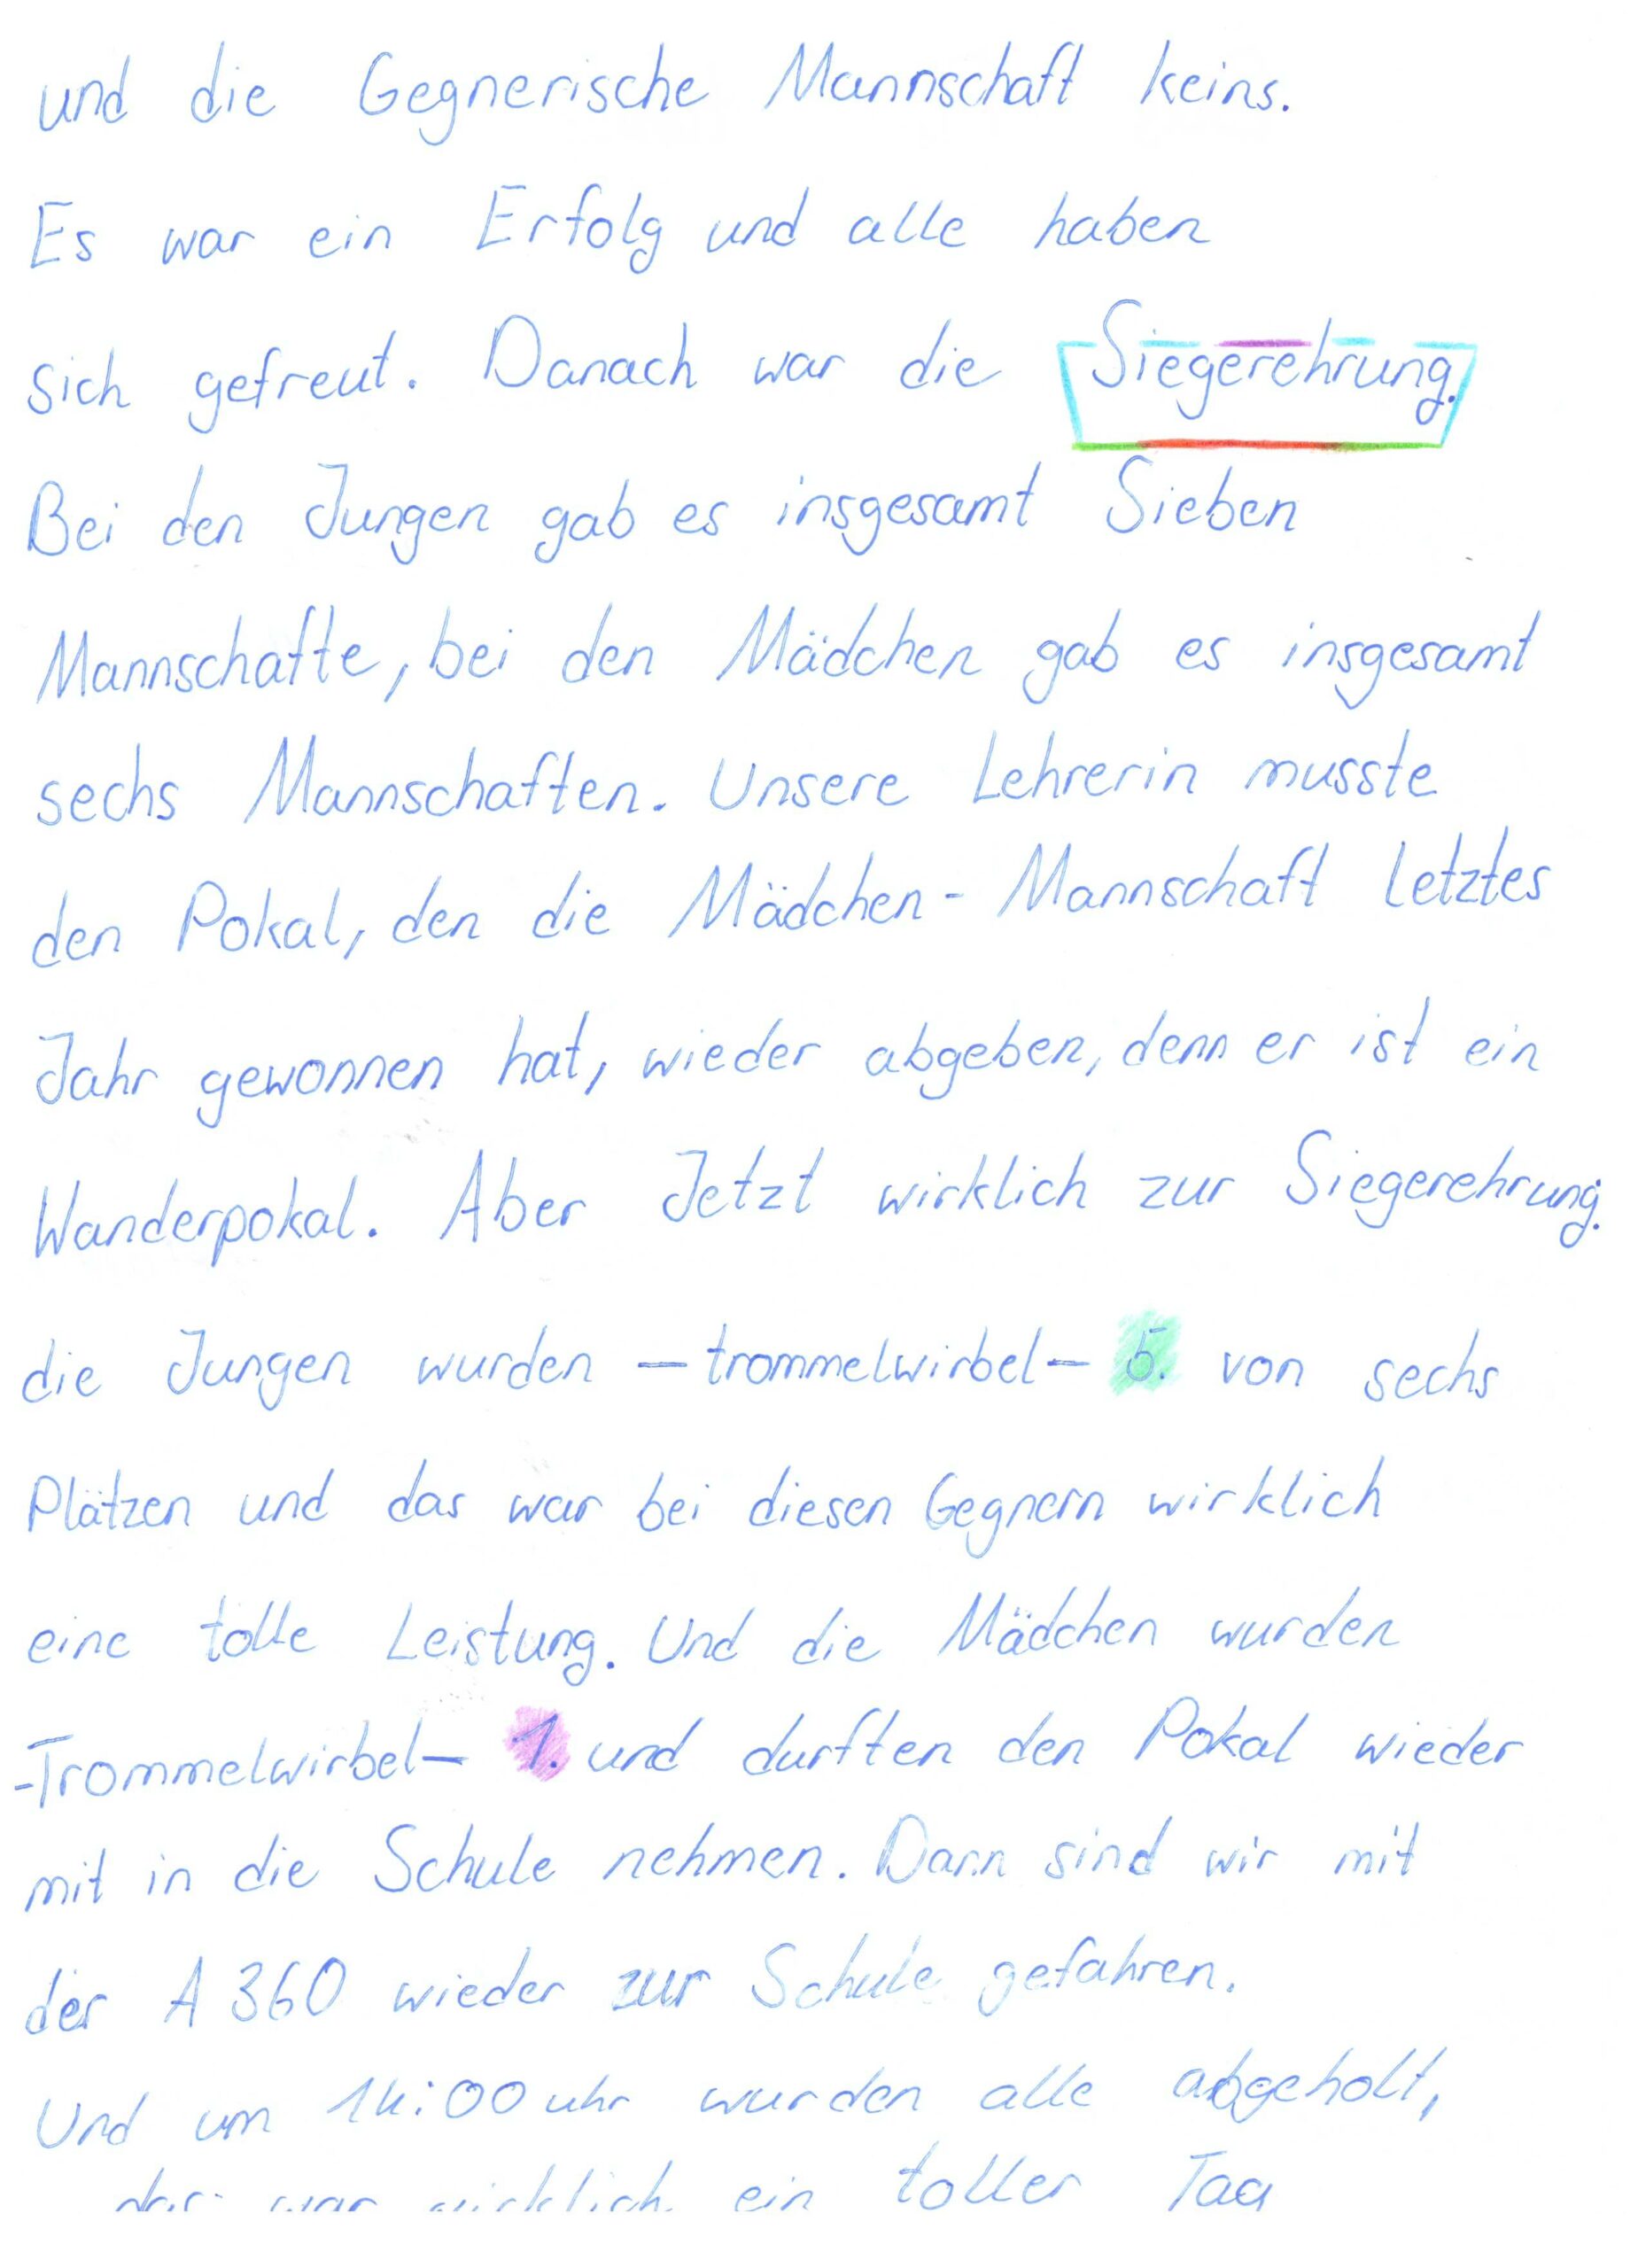 und die Gegnerische Mannschaft keins.
Es war ein Erfolg und alle haben
sich gefreut. Danach war die Siegerehrung.
Bei den Jungen gab es insgesamt Sieben
Mannschafte, bei den Mädchen gab es insgesamt
sechs Mannschaften. Unsere Lehrerin musste
den Pokal, den die Mädchen - Mannschaft letztes
Jahr gewonnen hat, wieder abgeben, denn er ist ein
Wanderpokal. Aber Jetzt wirklich zur Siegerehrung.
die Jungen wurden – trommelwirbel – 5. von sechs
Plätzen und das war bei diesen Gegnern wirklich
eine tolle Leistung. Und die Mädchen wurden
-Trommelwirbel– 1. und durften den Pokal wieder
mit in die Schule nehmen. Dann sind wir mit
der A 360 wieder zur Schule gefahren.
Und um 14:00 uhr wurden alle abgeholt,
das war wirklich ein toller Tag